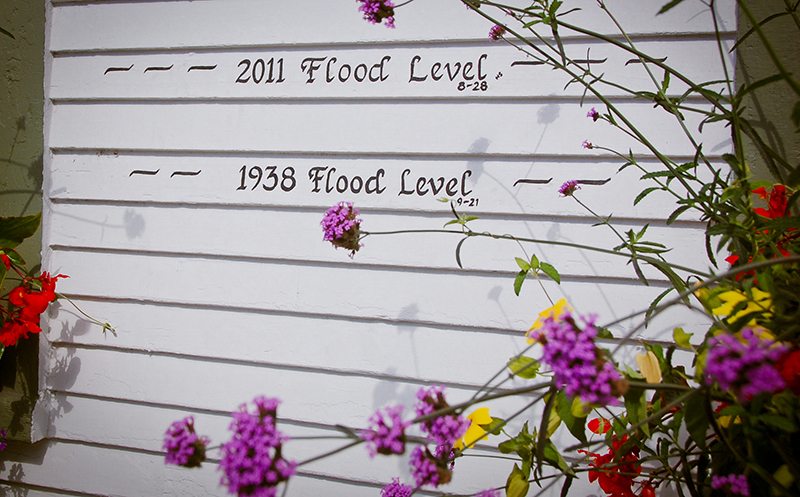 2011 Flood Level
8-28
1938 Flood Level
9-21